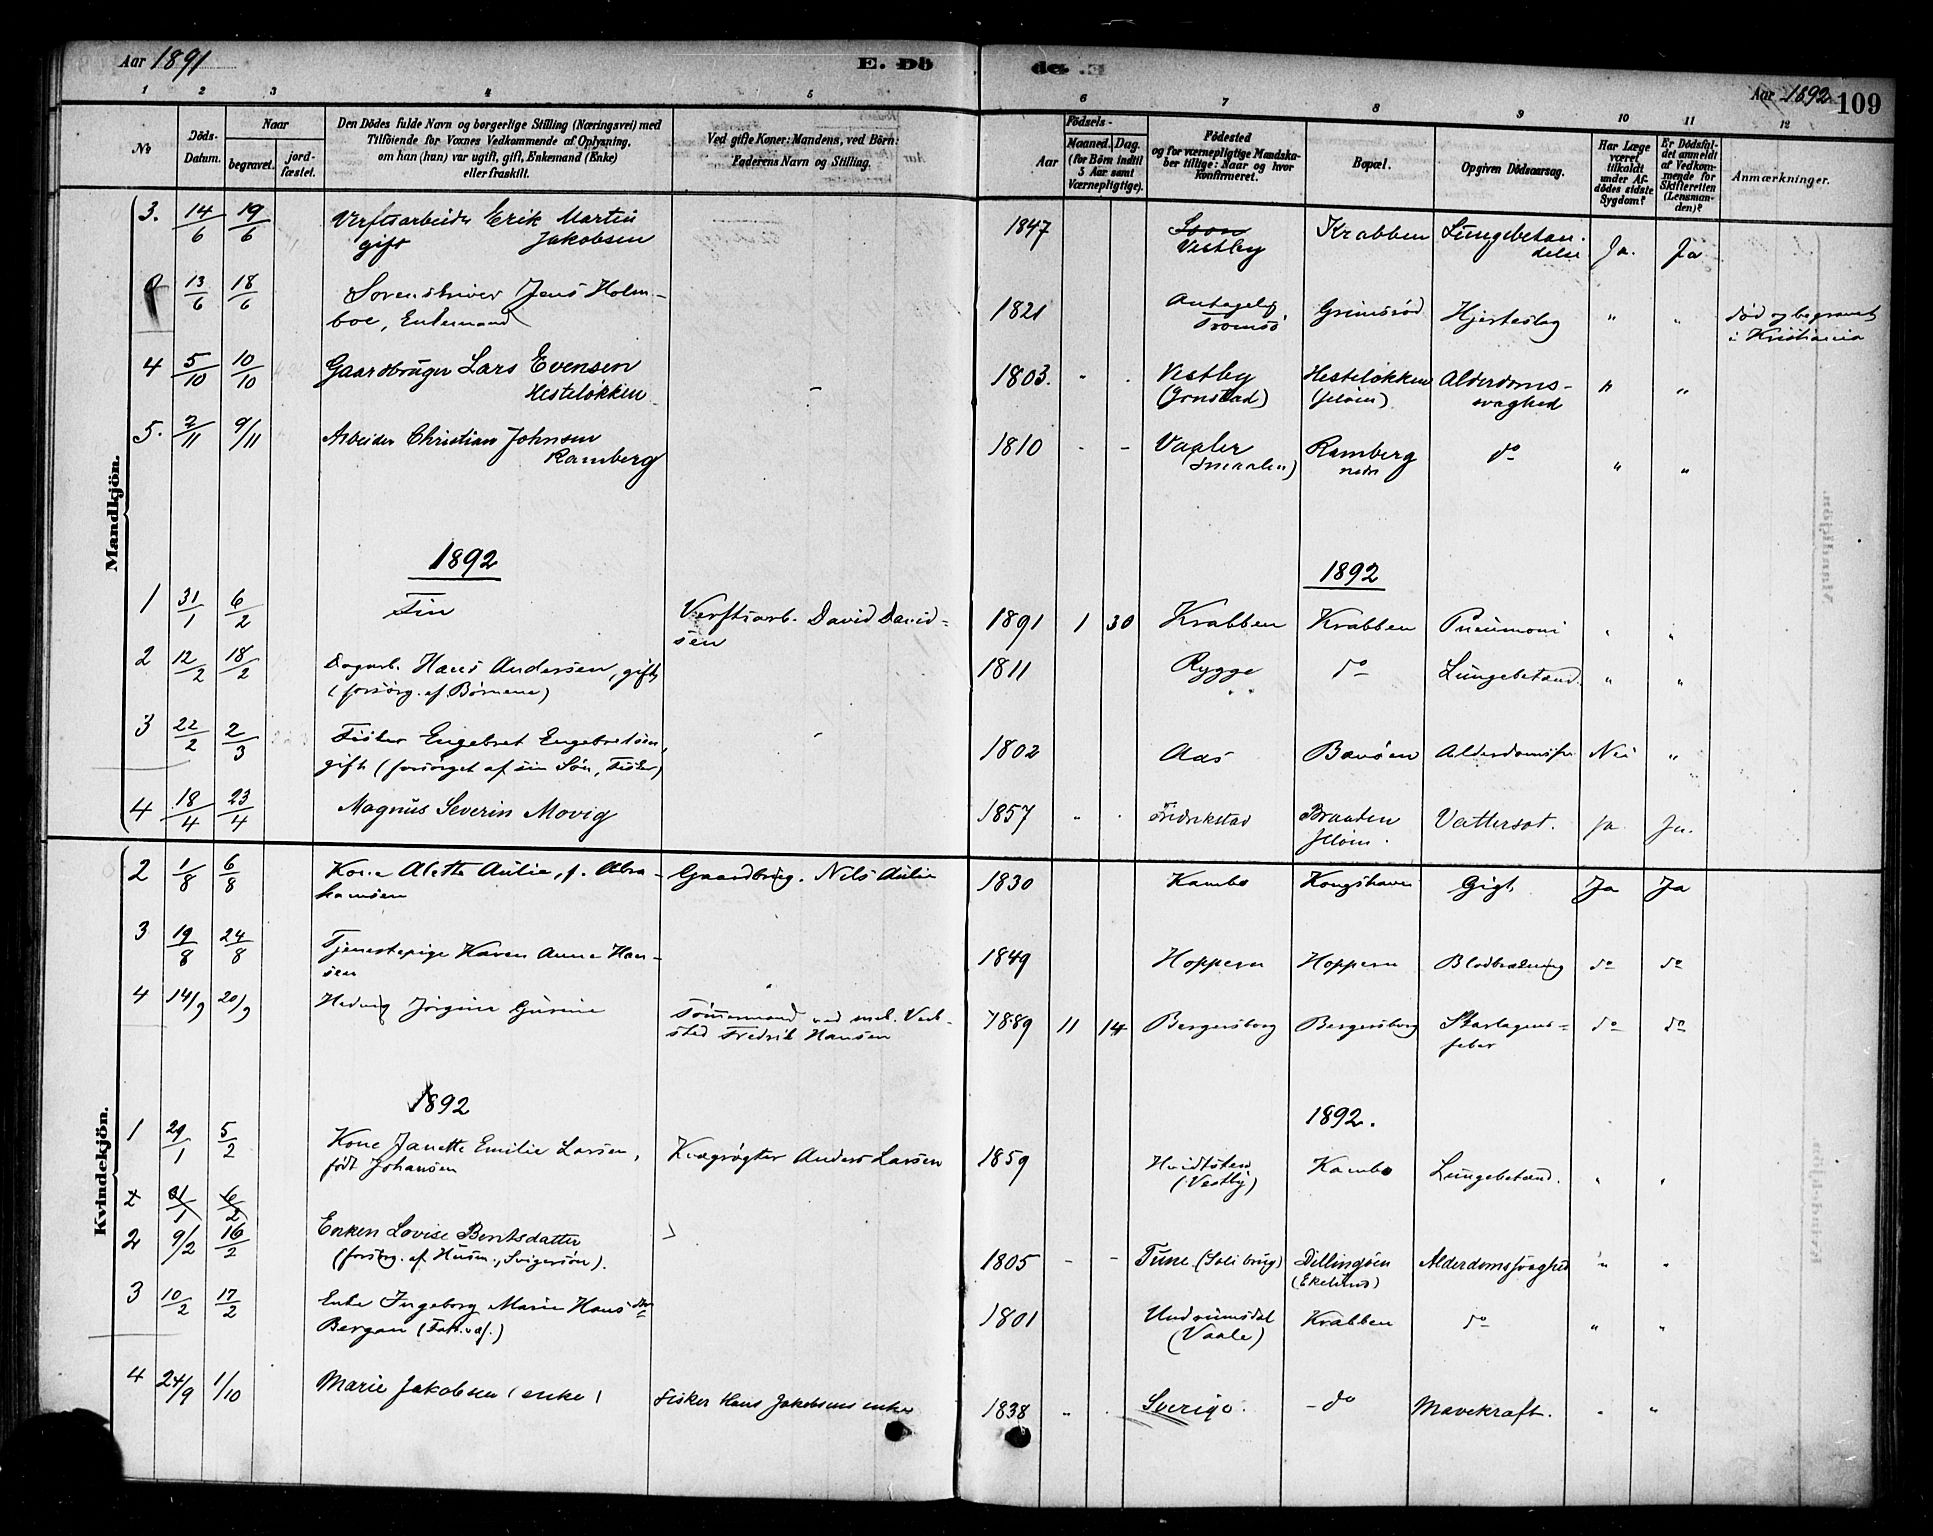 Aar 1891
E. Dö
de.
Aar 1892
109
1 2 3 4 5 6 7 8 9 10 11 12
No
Döds-Datum.
Naar
begravet.
jord-fæstet.
Den Dödes fulde Navn og borgerlige Stilling (Næringsvei) med
Tilföiende for Voxnes Vedkommende af Oplysning,
om han (hun) var ugift, gift, Enkemand (Enke)
eller fraskilt.
Ved gifte Koner: Mandens, ved Börn:
Faderens Navn og Stilling.
Födsels-
Aar
Maaned. Dag.
(for Börn indtil
5 Aar samt
Værnepligtige).
Födested
og for værnepligtige Mandska-
ber tillige: Naar og hvor
konfirmeret.
Bopæl.
Opgiven Dödsaarsag.
Har Læge
været
tilkaldt
under Af-
dödes sidste
Sygdom?
Er Dödsfal-
det anmeldt
af Vedkom-
mende for
Skifteretten
(Lensman-
den)?
Anmærkninger.
Mandkjön.
3. 14/6 19/6 Verftsarbeider Erik Martin 1847 Soon Krabben Lungebetæn-
gift Jakobsen Vestby delse Ja. Ja
13/6 18/6 Sorenskriver Jens Holm- 1821 Antagelig Grimsrød Hjerteslag " " død og begravet
boe, Enkemand Tromsø i Kristiania
4 5/10 10/10 Gaardbruger Lars Evensen 1803. Vestby Hesteløkken Alderdoms- " "
Hesteløkken (Jeløen) svaghed
5. 2/11 9/11 Arbeider Christian Johnsen 1810 - - Vaaler Ramberg do " "
Ramberg (Smaalen) nedre
1892 1892
1 31/1 6/2 Finn Verftsarb. David David- 1891 1 30 Krabben Krabben Pneumoni " "
sen
2 12/2 18/2 Dagarb. Hans Andersen, gift 1811 Rygge do Lungebetænd. " "
(forsörg. af Børnene)
3 22/2 2/3 Fisker Engebret Engebretsen, 1802 Aas Bævøen Alderdomssv Nei "
gift (forsørget af sin Søn, Fisker)
4 18/4 23/4 Magnus Severin Movig 1857 " Fredrikstad Braaten Vattersot. Ja Ja.
Jeløen.
Kvindekjön.
2 1/8 6/8 Kone Alette Aulie, f. Abra- Gaardbrug. Nils Aulie 1830 Kambo Kongshavn Gigt Ja Ja
hamsen
3 19/8 24/8 Tjenestepige Karen Anne Han- 1849 Hoppern Hoppern Blodbrækning do do
sen
4 14/9 20/9 Hedvig Jørgine Gurine Tømmermand ved mek. Verk- 1889 11 14 Bergersborg Bergersborg Skarlagens- do do
sted Fredrik Hansen feber
1892 1892.
1 29/1 5/2 Kone Janette Emilie Larsen, Kvægrøgter Anders Larsen 1859 Hvidtsten Kambo Lungebetænd. " "
født Johansen (Vestby)
2 31/1 6/2
2 9/2 16/2 Enken Lovise Berntsdatter 1805 - - Tune (Solibrug) Dillingøen Alderdomssvaghed " "
(forsörg. af Husm., Svigersøn). (Ekelund)
3 10/2 17/2 Enke Ingeborg Marie Hansdtr 1801 Undrumsdal Krabben do " "
Bergan (Fattigv.) (Vaale)
4 24/9 1/10 Marie Jakobsen (enke) Fisker Hans Jakobsens enke 1838 " Sverige. - do Mavekræft. " "